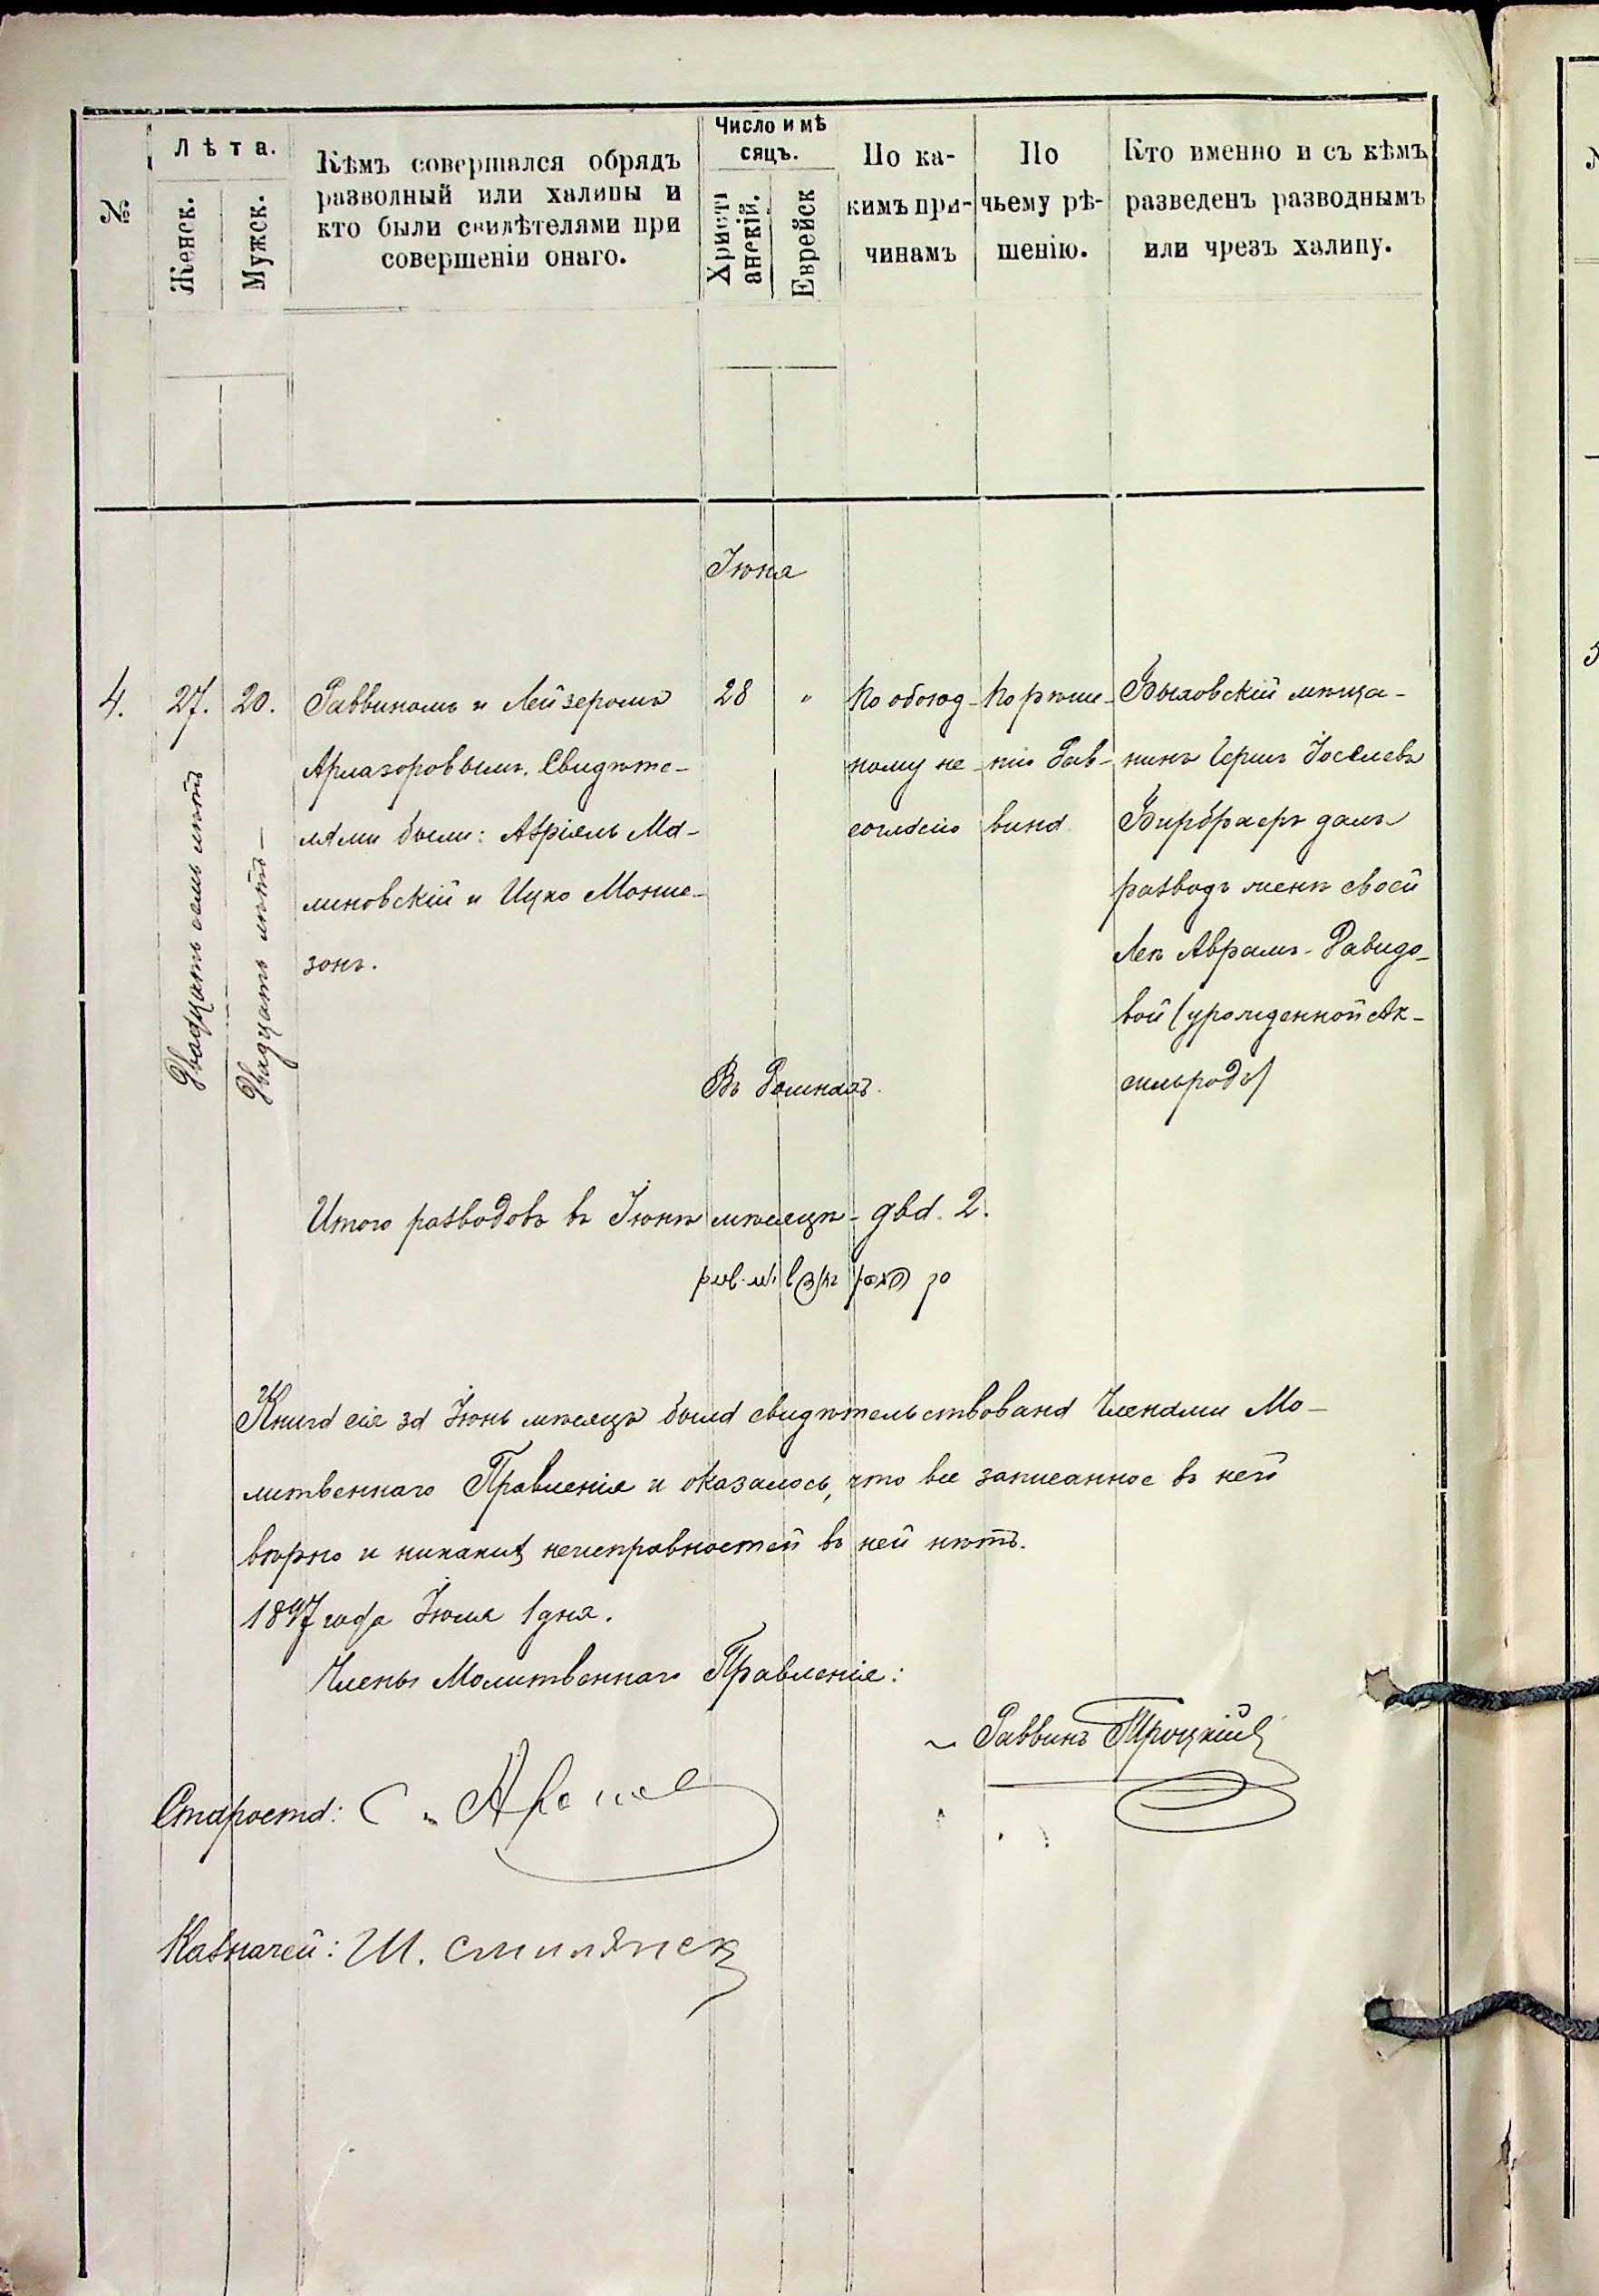 №
Лѣта.
Женск.
Мужск.
Кѣмъ совершался обрядъ
разводный или халицы и
кто были свидѣтелями при
совершеніи онаго.
Число и мѣ
сяцъ.
Христі
анскій.
Еврейск
По ка-
кимъ при-
чинамъ
По
чьему рѣ-
шенію.
Кто именно и съ кѣмъ
разведенъ разводнымъ
или чрезъ халицу.
Іюня
4.
27.
Двадцать семь лѣтъ
20.
Двадцать лѣтъ —
Раввиномъ и Лейзеромъ
Арлазоровымъ. Свидѣте-
лями были: Азріель Ма-
линовскій и Ицко Монше-
зонъ.
28
"
По обоюд-
ному не-
согласію
По рѣше-
нію Рав-
вина
Быховскій мѣща-
нинъ Гершъ Іоселевъ
Бирбраеръ далъ
разводъ женѣ своей
Леѣ Авраамъ-Давидо-
вой (урожденной Ак-
сельродъ)
Въ Ромнахъ.
Итого разводовъ въ Іюнѣ мѣсяцѣ - два. 2.
Книга сія за Іюнь мѣсяцъ была свидѣтельствована Членами Мо-
литвеннаго Правленія и оказалось, что все записанное въ ней
вѣрно и никакихъ неисправностей въ ней нѣтъ.
1897 года Іюля 1 дня.
Члены Молитвеннаго Правленія:
Раввинъ Троцкій
Староста:
Казначей: Ш. Смилянск